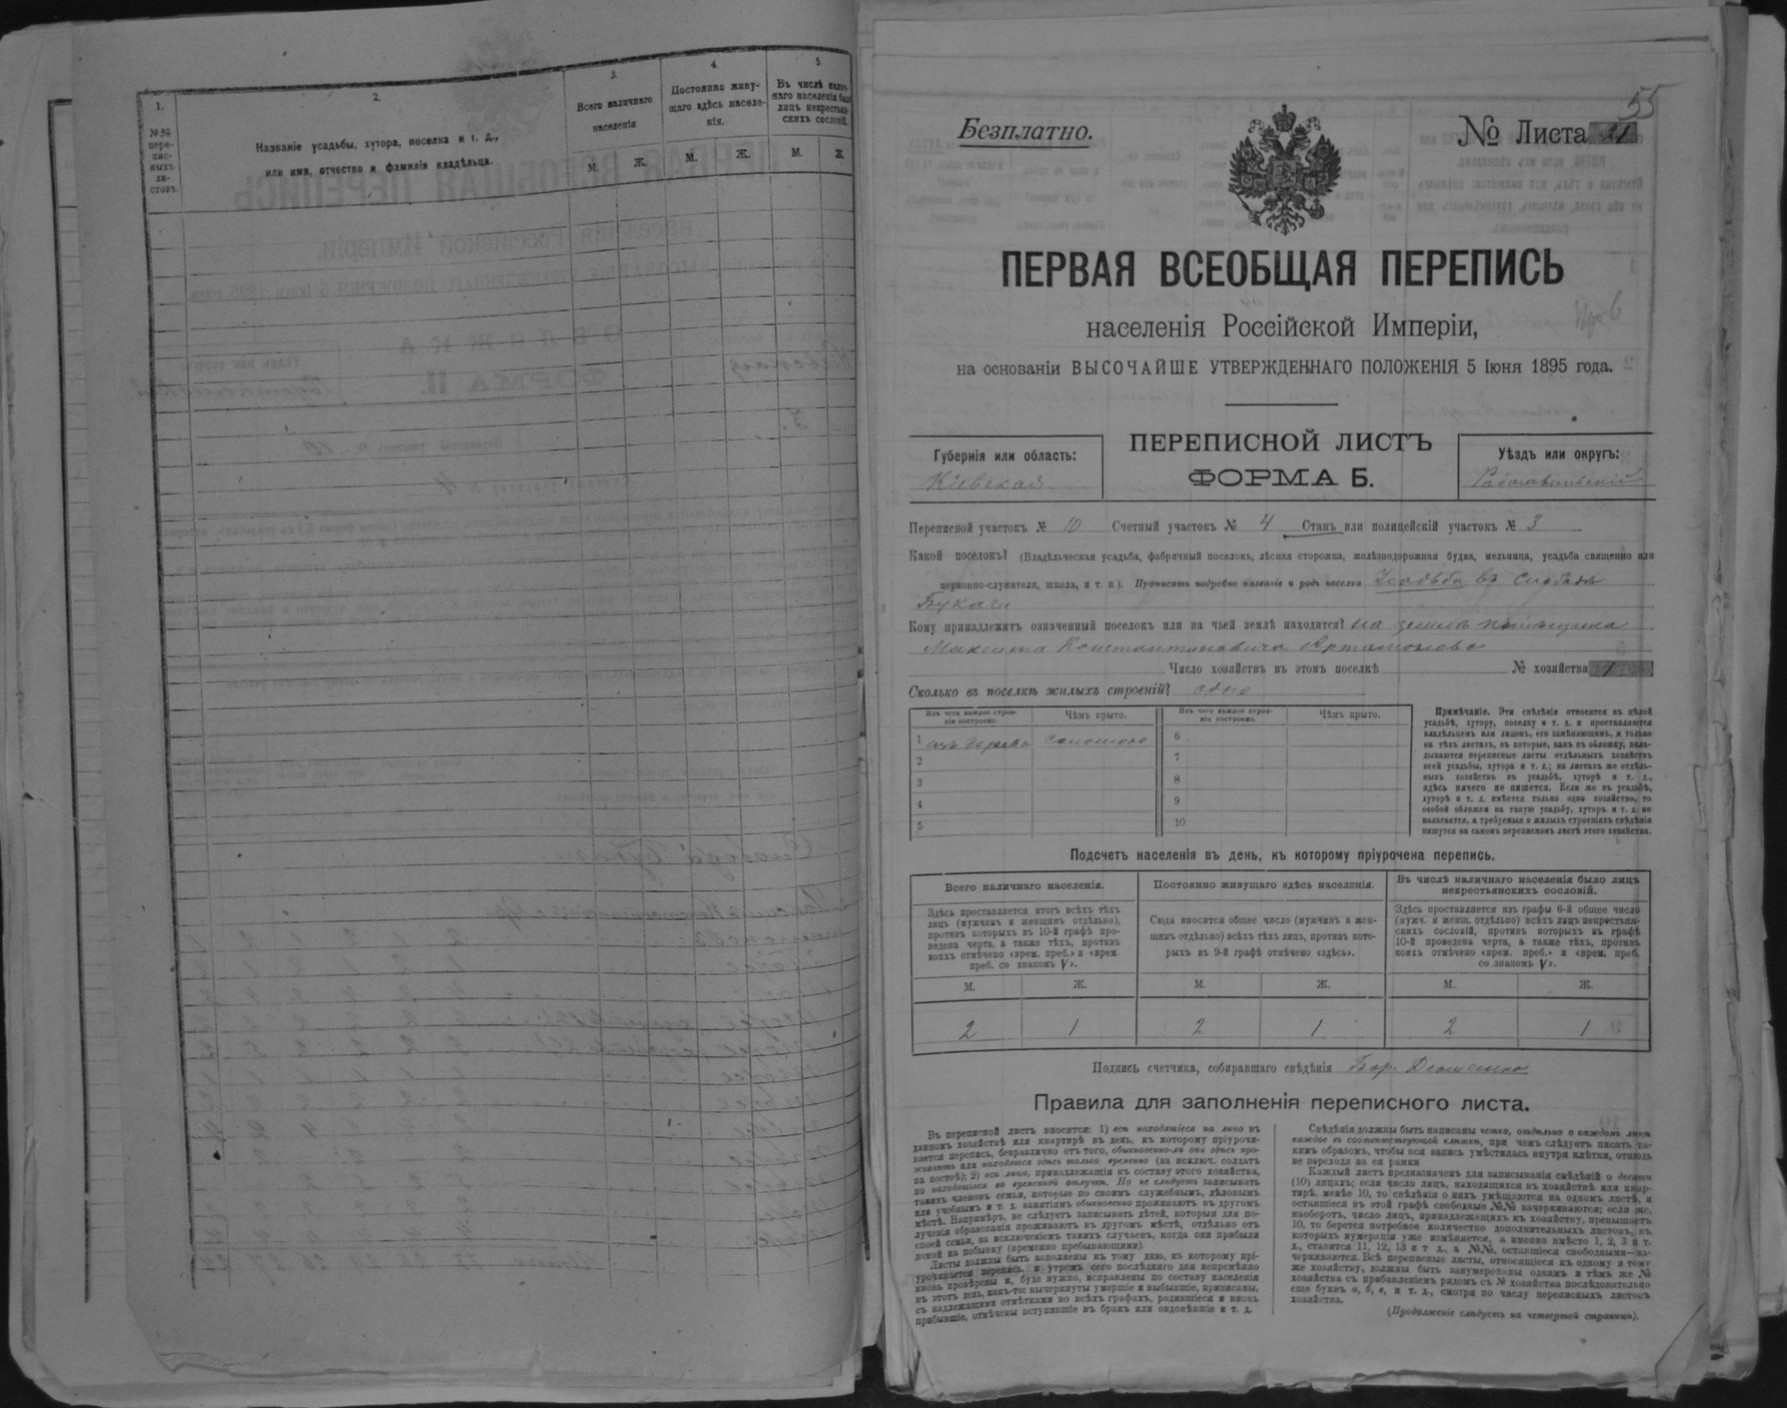 1.
2.
3.
4.
5
№№ пере-
пис-
ныхъ
ли-
стовъ.
Названіе усадьбы, хутора, поселка и т. д.,
или имя, отчество и фамилія владѣльца.
Всего наличнаго
населенія
Постоянно живу-
щаго здѣсь населе-
нія.
Въ числѣ налич-
наго населенія было
лицъ некрестьян-
скихъ сословій.
М. Ж. М. Ж. М. Ж.
55
Безплатно.
№ Листа
ПЕРВАЯ ВСЕОБЩАЯ ПЕРЕПИСЬ
населенія Россійской Имперіи,
на основаніи ВЫСОЧАЙШЕ УТВЕРЖДЕННАГО ПОЛОЖЕНІЯ 5 Іюня 1895 года.
Губернія или область:
Кіевская
ПЕРЕПИСНОЙ ЛИСТЪ
ФОРМА Б.
Уѣздъ или округъ:
Переписной участокъ № 10 Счетный участокъ № 4 Станъ или полицейскій участокъ № 3
Какой поселокъ? (Владѣльческая усадьба, фабричный поселокъ, лѣсная сторожка, желѣзнодорожная будка, мельница, усадьба священно или
церковно-служителя, школа, и т. п.). Прописать подробно названіе и родъ поселка Усадьба въ слободѣ
Букачи
Кому принадлежитъ означенный поселокъ или на чьей землѣ находится? на землѣ помѣщика
Максима Константиновича Артамонова
Число хозяйствъ въ этомъ поселкѣ № хозяйства 1
Сколько въ поселкѣ жилыхъ строеній? одно
Изъ чего каждое строе-
ніе построено.
Чѣмъ крыто.
Изъ чего каждое строе-
ніе построено.
Чѣмъ крыто.
1 изъ дерева соломою 6
2 7
3 8
4 9
5 10
Примѣчаніе. Эти свѣдѣнія относятся къ цѣлой
усадьбѣ, хутору, поселку и т. д. и проставляются
владѣльцемъ или лицомъ, его замѣняющимъ, и только
на тѣхъ листахъ, въ которые, какъ въ обложку, вкла-
дываются переписные листы отдѣльныхъ хозяйствъ
всей усадьбы, хутора и т. д.; на листахъ же отдѣль-
ныхъ хозяйствъ въ усадьбѣ, хуторѣ и т. д.,
здѣсь ничего не пишется. Если же въ усадьбѣ,
хуторѣ и т. д. имѣется только одно хозяйство, то
особой обложки на такую усадьбу, хуторъ и т. д. не
полагается, а требуемыя о жилыхъ строеніяхъ свѣдѣнія
пишутся на самомъ переписномъ листѣ этого хозяйства.
Подсчетъ населенія въ день, къ которому пріурочена перепись.
Всего наличнаго населенія.
Постоянно живущаго здѣсь населенія.
Въ числѣ наличнаго населенія было лицъ
некрестьянскихъ сословій.
Здѣсь проставляется итогъ всѣхъ тѣхъ
лицъ (мужчинъ и женщинъ отдѣльно),
противъ которыхъ въ 10-й графѣ про-
ведена черта, а также тѣхъ, противъ
коихъ отмѣчено «врем. преб.» и «врем.
преб. со знакомъ V».
Сюда вносится общее число (мужчинъ и жен-
щинъ отдѣльно) всѣхъ тѣхъ лицъ, противъ кото-
рыхъ въ 9-й графѣ отмѣчено «здѣсь».
Здѣсь проставляется изъ графы 6-й общее число
(мужч. и женщ. отдѣльно) всѣхъ лицъ некрестьян-
скихъ сословій, противъ которыхъ въ графѣ
10-й проведена черта, а также тѣхъ, противъ
коихъ отмѣчено «врем. преб.» и «врем. преб.
со знакомъ V».
М. Ж. М. Ж. М. Ж.
2 1 2 1 2 1
Подпись счетчика, собиравшаго свѣдѣнія
Правила для заполненія переписного листа.
Въ переписной листъ вносятся: 1) всѣ находящіеся на лицо въ
данномъ хозяйствѣ или квартирѣ въ день, къ которому пріурочи-
вается перепись, безразлично отъ того, обыкновенно-ли они здѣсь про-
живаютъ или находятся здѣсь только временно (за исключ. солдатъ
на постоѣ); 2) всѣ лица, принадлежащія къ составу этого хозяйства,
но находящіяся во временной отлучкѣ. Но не слѣдуетъ записывать
такихъ членовъ семьи, которые по своимъ служебнымъ, дѣловымъ
или учебнымъ и т. д. занятіямъ обыкновенно проживаютъ въ другомъ
мѣстѣ. Напримѣръ, не слѣдуетъ записывать дѣтей, которыя для по-
лученія образованія проживаютъ въ другомъ мѣстѣ, отдѣльно отъ
своей семьи, за исключеніемъ такихъ случаевъ, когда они прибыли
домой на побывку (временно пребывающими).
Листы должны быть заполнены къ тому дню, къ которому прі-
урочивается перепись, и утромъ сего послѣдняго дня непремѣнно
вновь провѣрены и, буде нужно, исправлены по составу населенія
въ этотъ день, какъ-то: вычеркнуты умершіе и выбывшіе, приписаны,
съ надлежащими отмѣтками во всѣхъ графахъ, родившіеся и вновь
прибывшіе, отмѣчены вступившіе въ бракъ или овдовѣвшіе и т. д.
Свѣдѣнія должны быть написаны четко, отдѣльно о каждомъ лицѣ
каждое въ соотвѣтствующей клѣткѣ, при чемъ слѣдуетъ писать та-
кимъ образомъ, чтобы вся запись умѣстилась внутри клѣтки, отнюдь
не переходя за ея рамки
Каждый листъ предназначенъ для записыванія свѣдѣній о десяти
(10) лицахъ; если число лицъ, находящихся въ хозяйствѣ или квар-
тирѣ, менѣе 10, то свѣдѣнія о нихъ умѣщаются на одномъ листѣ, и
оставшіеся въ этой графѣ свободные №№ зачеркиваются; если же,
наоборотъ, число лицъ, принадлежащихъ къ хозяйству, превышаетъ
10, то берется потребное количество дополнительныхъ листовъ, въ
которыхъ нумерація уже измѣняется, а именно вмѣсто 1, 2, 3 и т.
д., ставится 11, 12, 13 и т д., а №№, оставшіеся свободными—за-
черкиваются. Всѣ переписные листы, относящіеся къ одному и тому
же хозяйству, должны быть занумерованы однимъ и тѣмъ же №
хозяйства съ прибавленіемъ рядомъ съ № хозяйства послѣдовательно
еще буквъ а, б, в, и т. д., смотря по числу переписныхъ листовъ
хозяйства.
(Продолженіе слѣдуетъ на четвертой страницѣ).